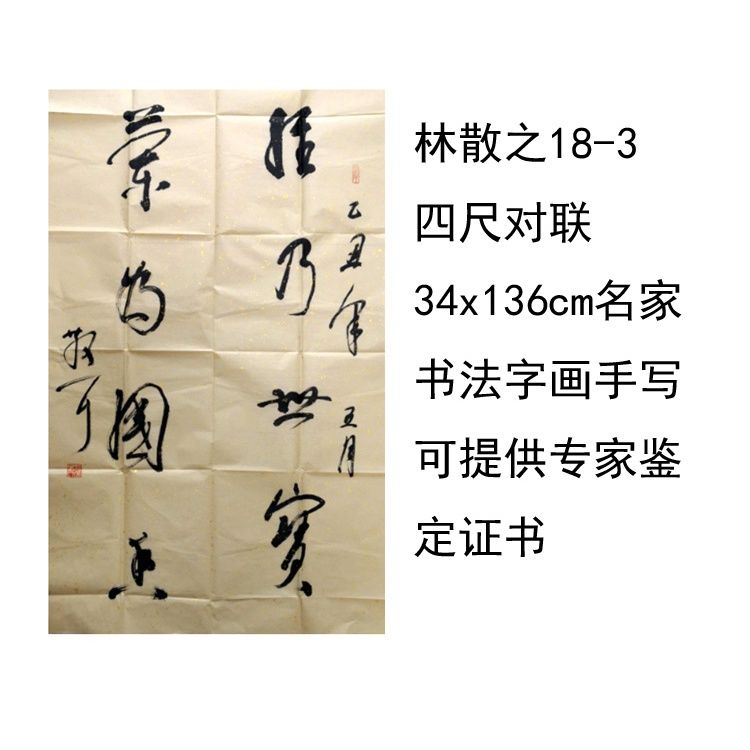 乙丑年 五月
經乃世寶
蘭為國香
散耳
林散之18-3
四尺对联
34x136cm名家
书法字画手写
可提供专家鉴
定证书